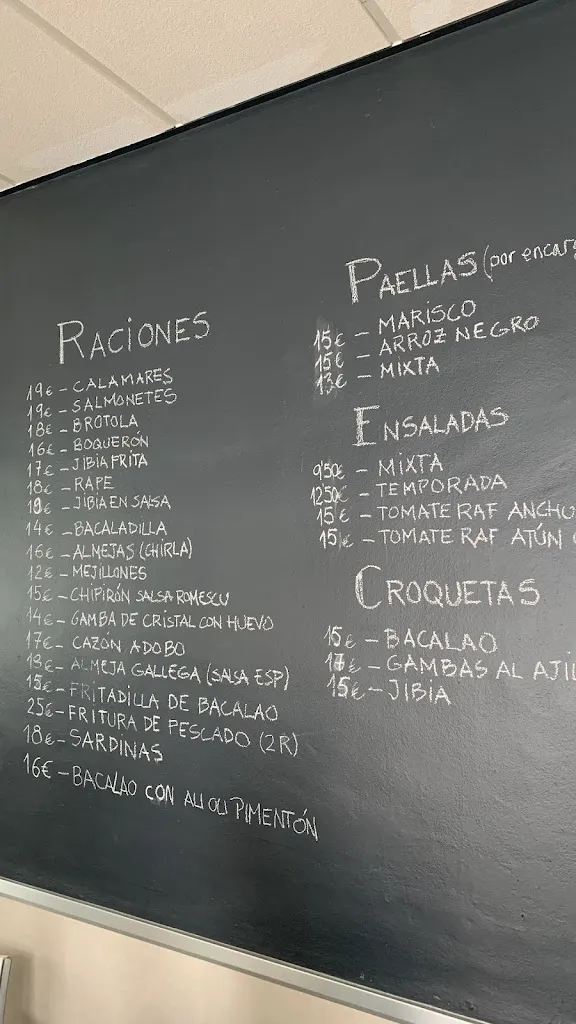 RACIONES
19€ - CALAMARES
19€ - SALMONETES
18€ - BROTOLA
16€ - BOQUERÓN
17€ - JIBIA FRITA
18€ - RAPE
19€ - JIBIA EN SALSA
14€ - BACALADILLA
16€ - ALMEJAS (CHIRLA)
12€ - MEJILLONES
15€ - CHIPIRÓN SALSA ROMESCU
14€ - GAMBA DE CRISTAL CON HUEVO
17€ - CAZÓN ADOBO
18€ - ALMEJA GALLEGA (SALSA ESP)
15€ - FRITADILLA DE BACALAO
25€ - FRITURA DE PESCADO (2R)
18€ - SARDINAS
16€ - BACALAO CON ALIOLI PIMENTÓN
PAELLAS (por encarg
15€ - MARISCO
15€ - ARROZ NEGRO
13€ - MIXTA
ENSALADAS
9'50€ - MIXTA
12'50€ - TEMPORADA
15€ - TOMATE RAF ANCHO
15€ - TOMATE RAF ATÚN
CROQUETAS
15€ - BACALAO
17€ - GAMBAS AL AJIL
15€ - JIBIA